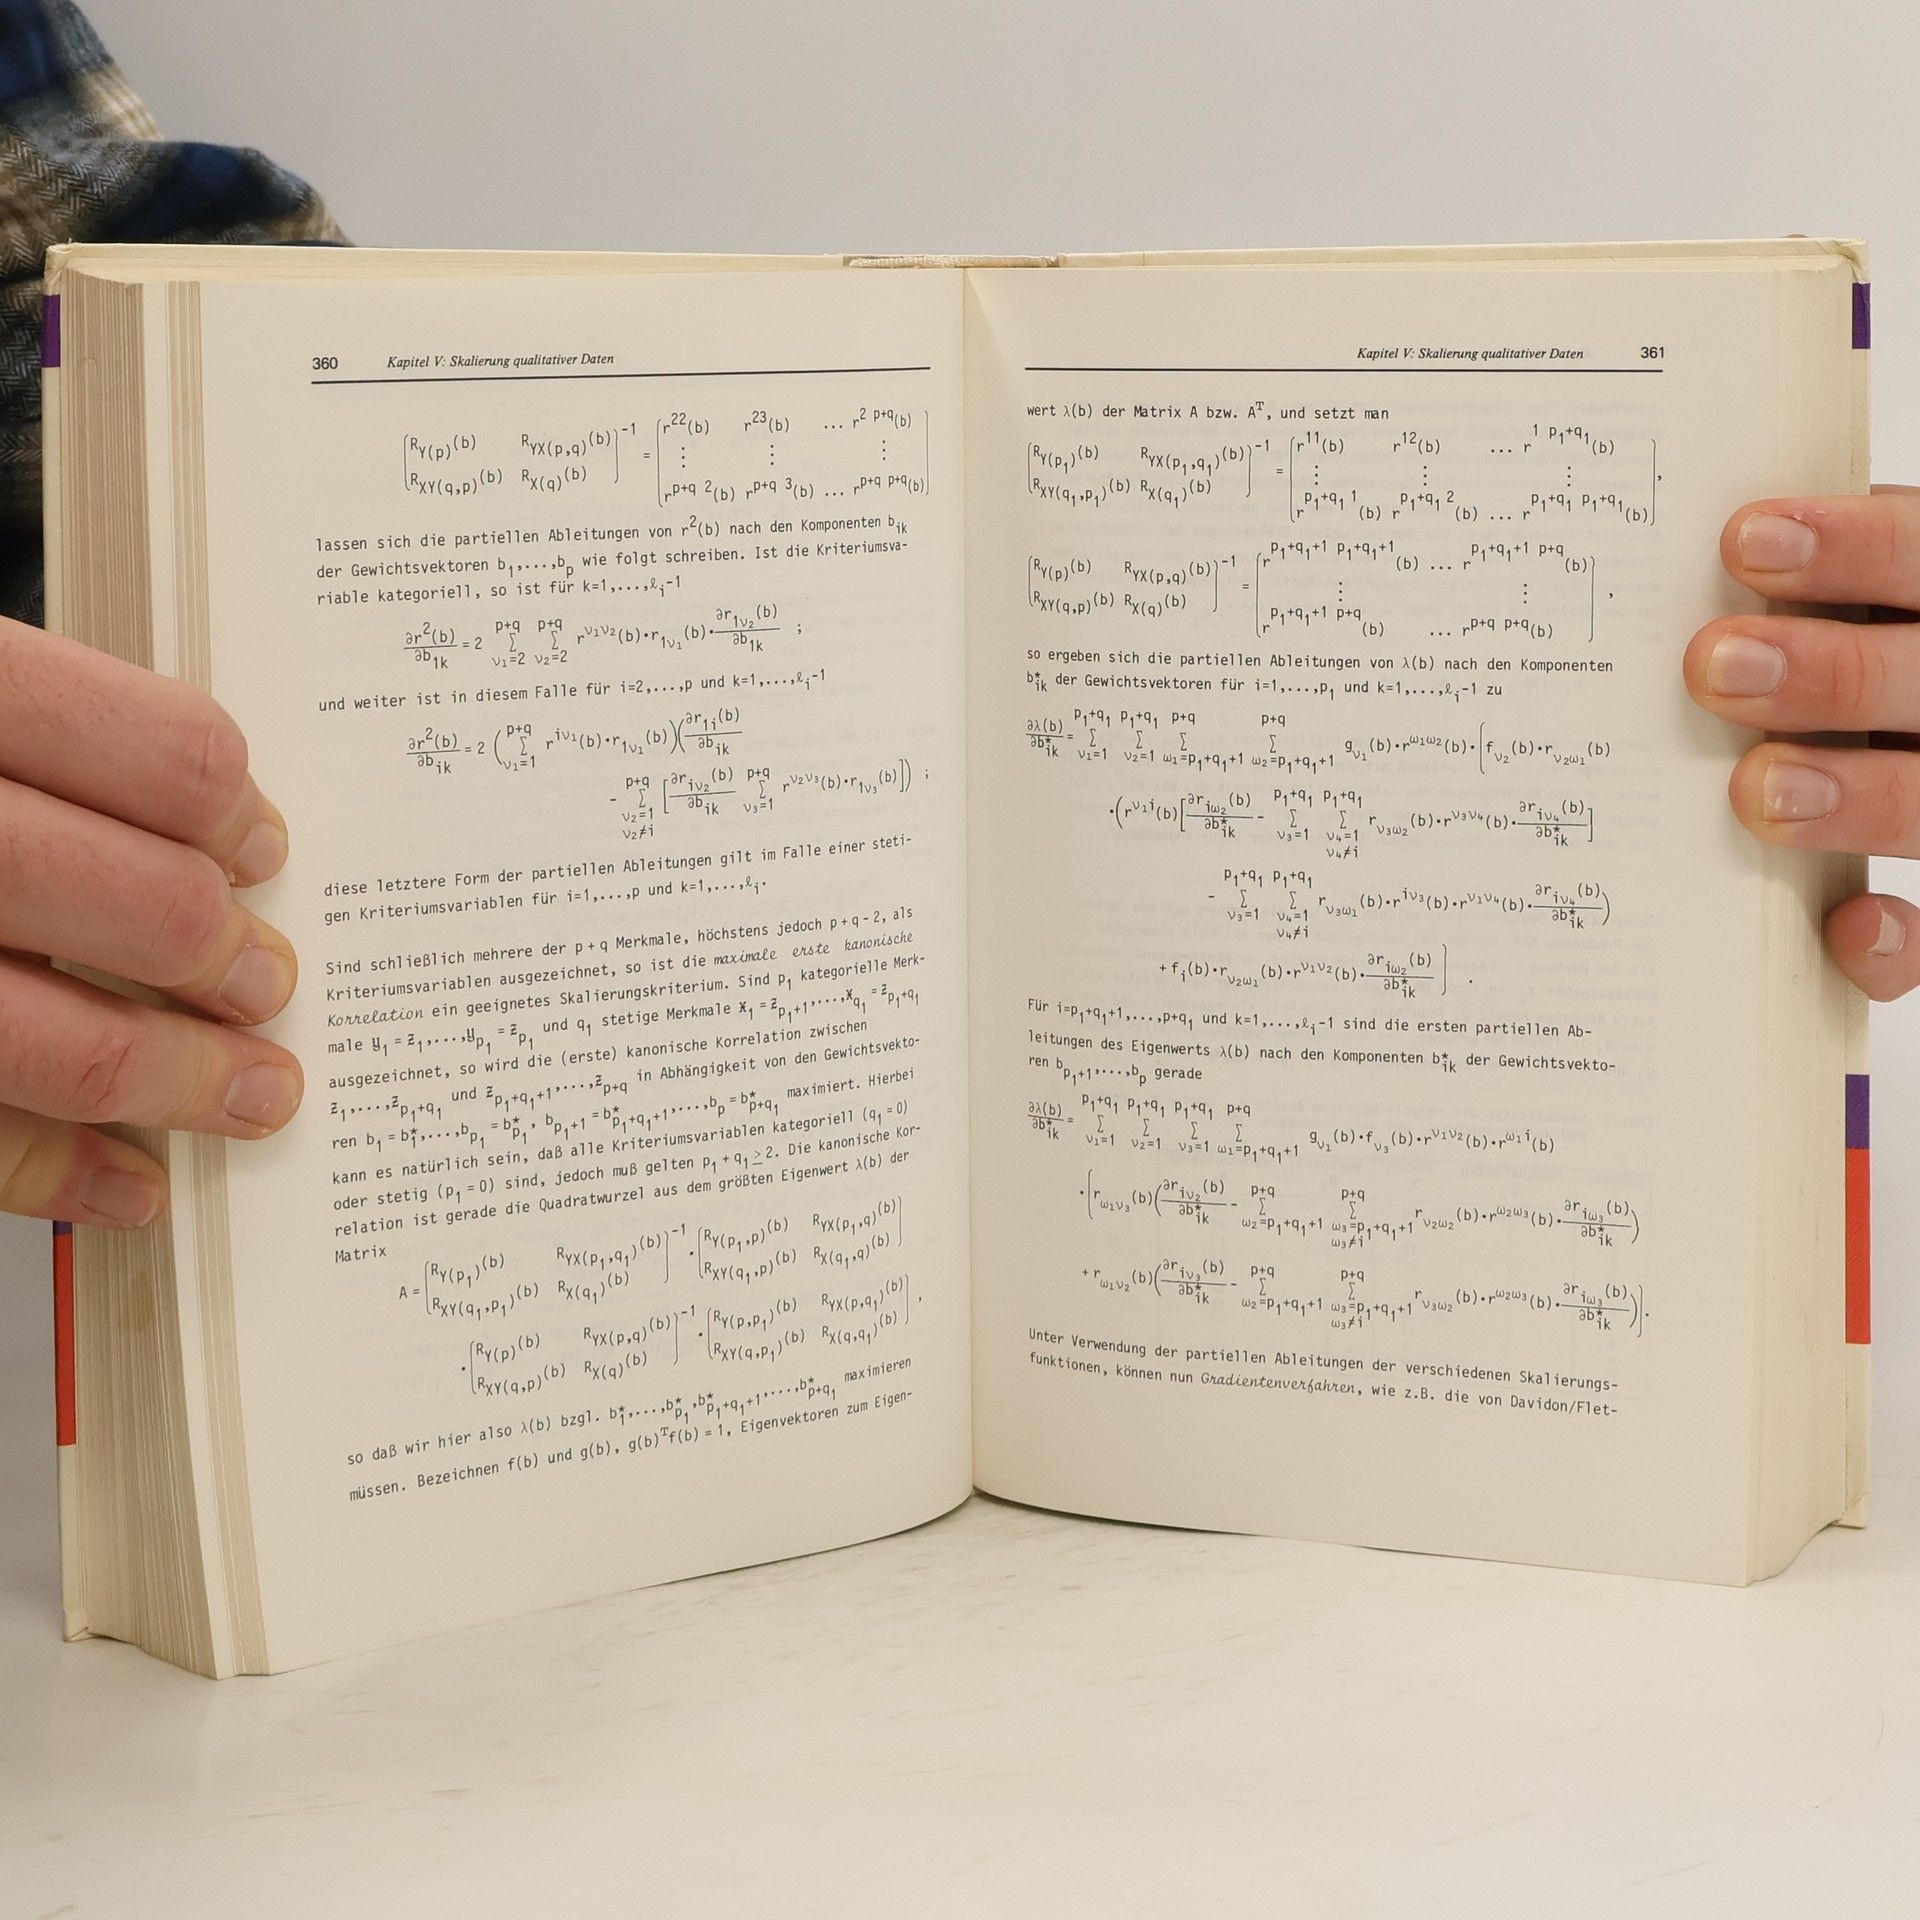 360 Kapitel V: Skalierung qualitativer Daten
[R_Y(p)(b) R_YX(p,q)(b); R_XY(q,p)(b) R_X(q)(b)]^-1 = [r^22(b) r^23(b) ... r^2 p+q(b); ⋮ ⋮ ⋮; r^p+q 2(b) r^p+q 3(b) ... r^p+q p+q(b)]
lassen sich die partiellen Ableitungen von r²(b) nach den Komponenten b_ik
der Gewichtsvektoren b_1,...,b_p wie folgt schreiben. Ist die Kriteriumsva-
riable kategoriell, so ist für k=1,...,ℓ_i-1
∂r²(b)/∂b_1k = 2 Σ_{ν1=2}^{p+q} Σ_{ν2=2}^{p+q} r^{ν1ν2}(b)•r_{1ν1}(b)•∂r_{1ν2}(b)/∂b_1k ;
und weiter ist in diesem Falle für i=2,...,p und k=1,...,ℓ_i-1
∂r²(b)/∂b_ik = 2 (Σ_{ν1=1}^{p+q} r^{iν1}(b)•r_{1ν1}(b))(∂r_{1i}(b)/∂b_ik
- Σ_{ν2=1, ν2≠i}^{p+q} [∂r_{iν2}(b)/∂b_ik Σ_{ν3=1}^{p+q} r^{ν2ν3}(b)•r_{1ν3}(b)]) ;
diese letztere Form der partiellen Ableitungen gilt im Falle einer steti-
gen Kriteriumsvariablen für i=1,...,p und k=1,...,ℓ_i.
Sind schließlich mehrere der p+q Merkmale, höchstens jedoch p+q-2, als
Kriteriumsvariablen ausgezeichnet, so ist die maximale erste kanonische
Korrelation ein geeignetes Skalierungskriterium. Sind p_1 kategorielle Merk-
male y_1 = z_1,...,y_p_1 = z_p_1 und q_1 stetige Merkmale x_1 = z_{p_1+1},...,x_q_1 = z_{p_1+q_1}
ausgezeichnet, so wird die (erste) kanonische Korrelation zwischen
z_1,...,z_{p_1+q_1} und z_{p_1+q_1+1},...,z_{p+q} in Abhängigkeit von den Gewichtsvekto-
ren b_1 = b*_1,...,b_p_1 = b*_p_1, b_{p_1+1} = b*_{p_1+q_1+1},...,b_p = b*_{p+q_1} maximiert. Hierbei
kann es natürlich sein, daß alle Kriteriumsvariablen kategoriell (q_1 = 0)
oder stetig (p_1 = 0) sind, jedoch muß gelten p_1 + q_1 ≥ 2. Die kanonische Kor-
relation ist gerade die Quadratwurzel aus dem größten Eigenwert λ(b) der
Matrix
A = [R_Y(p_1)(b) R_YX(p_1,q_1)(b); R_XY(q_1,p_1)(b) R_X(q_1)(b)]^-1 • [R_Y(p_1,p)(b) R_YX(p_1,q)(b); R_XY(q_1,p)(b) R_X(q_1,q)(b)]
• [R_Y(p)(b) R_YX(p,q)(b); R_XY(q,p)(b) R_X(q)(b)]^-1 • [R_Y(p,p_1)(b) R_YX(p,q_1)(b); R_XY(q,p_1)(b) R_X(q,q_1)(b)] ,
so daß wir hier also λ(b) bzgl. b*_1,...,b*_p_1,b*_{p_1+q_1+1},...,b*_{p+q_1} maximieren
müssen. Bezeichnen f(b) und g(b), g(b)^T f(b) = 1, Eigenvektoren zum Eigen-
Kapitel V: Skalierung qualitativer Daten 361
wert λ(b) der Matrix A bzw. A^T, und setzt man
[R_Y(p_1)(b) R_YX(p_1,q_1)(b); R_XY(q_1,p_1)(b) R_X(q_1)(b)]^-1 = [r^11(b) r^12(b) ... r^{1 p_1+q_1}(b); ⋮ ⋮ ⋮; r^{p_1+q_1 1}(b) r^{p_1+q_1 2}(b) ... r^{p_1+q_1 p_1+q_1}(b)],
[R_Y(p)(b) R_YX(p,q)(b); R_XY(q,p)(b) R_X(q)(b)]^-1 = [r^{p_1+q_1+1 p_1+q_1+1}(b) ... r^{p_1+q_1+1 p+q}(b); ⋮ ⋮; r^{p_1+q_1+1 p+q}(b) ... r^{p+q p+q}(b)] ,
so ergeben sich die partiellen Ableitungen von λ(b) nach den Komponenten
b*_ik der Gewichtsvektoren für i=1,...,p_1 und k=1,...,ℓ_i-1 zu
∂λ(b)/∂b*_ik = Σ_{ν1=1}^{p_1+q_1} Σ_{ν2=1}^{p_1+q_1} Σ_{ω1=p_1+q_1+1}^{p+q} Σ_{ω2=p_1+q_1+1}^{p+q} g_ν1(b)•r^{ω1ω2}(b)•[f_ν2(b)•r_{ν2ω1}(b)
•(r^{ν1i}(b)[∂r_{iω2}(b)/∂b*_ik - Σ_{ν3=1}^{p_1+q_1} Σ_{ν4=1, ν4≠i}^{p_1+q_1} r_{ν3ω2}(b)•r^{ν3ν4}(b)•∂r_{iν4}(b)/∂b*_ik]
- Σ_{ν3=1}^{p_1+q_1} Σ_{ν4=1, ν4≠i}^{p_1+q_1} r_{ν3ω1}(b)•r^{iν3}(b)•r^{ν1ν4}(b)•∂r_{iν4}(b)/∂b*_ik)
+ f_i(b)•r_{ν2ω1}(b)•r^{ν1ν2}(b)•∂r_{iω2}(b)/∂b*_ik] .
Für i=p_1+q_1+1,...,p+q_1 und k=1,...,ℓ_i-1 sind die ersten partiellen Ab-
leitungen des Eigenwerts λ(b) nach den Komponenten b*_ik der Gewichtsvekto-
ren b_{p_1+1},...,b_p gerade
∂λ(b)/∂b*_ik = Σ_{ν1=1}^{p_1+q_1} Σ_{ν2=1}^{p_1+q_1} Σ_{ν3=1}^{p_1+q_1} Σ_{ω1=p_1+q_1+1}^{p+q} g_ν1(b)•f_ν3(b)•r^{ν1ν2}(b)•r^{ω1i}(b)
•[r_{ω1ν3}(b)(∂r_{iν2}(b)/∂b*_ik - Σ_{ω2=p_1+q_1+1}^{p+q} Σ_{ω3=p_1+q_1+1, ω3≠i}^{p+q} r_{ν2ω2}(b)•r^{ω2ω3}(b)•∂r_{iω3}(b)/∂b*_ik)
+ r_{ω1ν2}(b)(∂r_{iν3}(b)/∂b*_ik - Σ_{ω2=p_1+q_1+1}^{p+q} Σ_{ω3=p_1+q_1+1, ω3≠i}^{p+q} r_{ν3ω2}(b)•r^{ω2ω3}(b)•∂r_{iω3}(b)/∂b*_ik)].
Unter Verwendung der partiellen Ableitungen der verschiedenen Skalierungs-
funktionen, können nun Gradientenverfahren, wie z.B. die von Davidon/Flet-